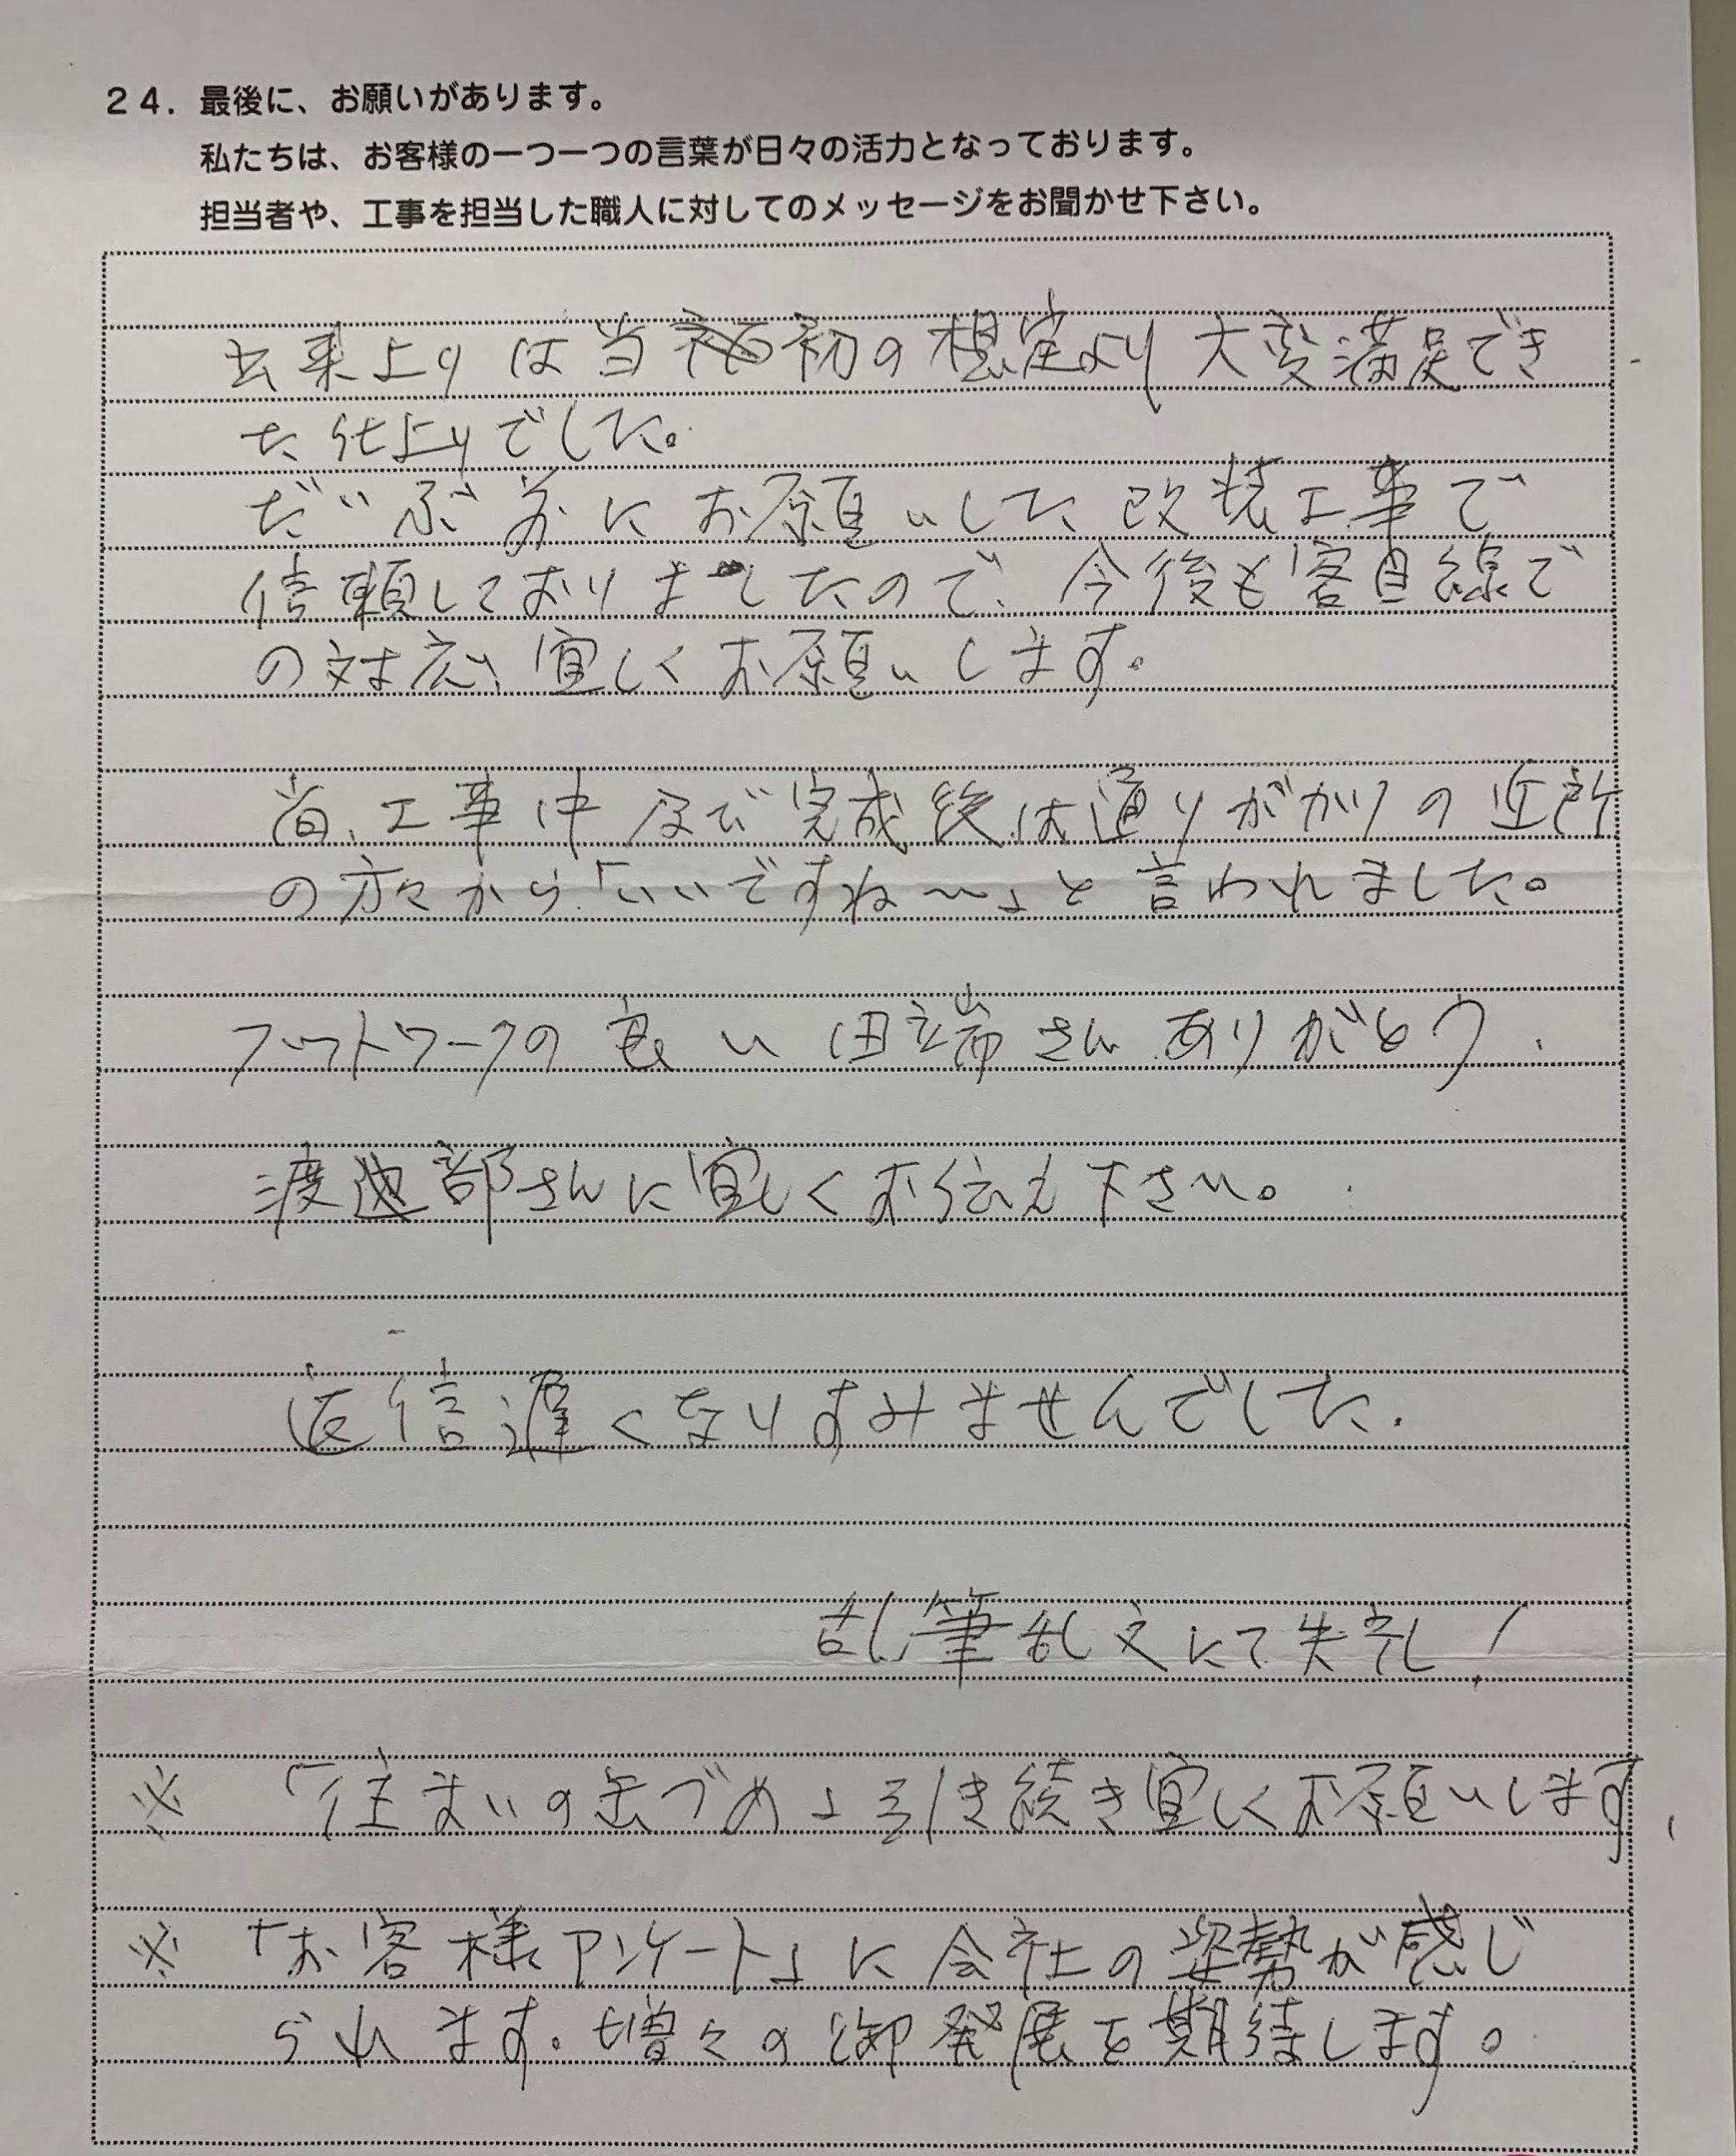 ２４．最後に、お願いがあります。
私たちは、お客様の一つ一つの言葉が日々の活力となっております。
担当者や、工事を担当した職人に対してのメッセージをお聞かせ下さい。
出来上りは当初の想定より大変満足でき
た仕上りでした。
だいぶ前にお願いした改装工事で
信頼しておりましたので、今後も客目線で
の対応、宜しくお願いします。
尚、工事中及び完成後は通りがかりの近所
の方々から「いいですね〜」と言われました。
フットワークの良い田端さんありがとう.
渡辺部さんに宜しくお伝え下さい。
返信遅くなりすみませんでした.
乱筆乱文にて失礼！
※「住まいの缶づめ」引き続き宜しくお願いします、
※「お客様アンケート」に会社の姿勢が感じ
られます。増々の御発展を期待します。